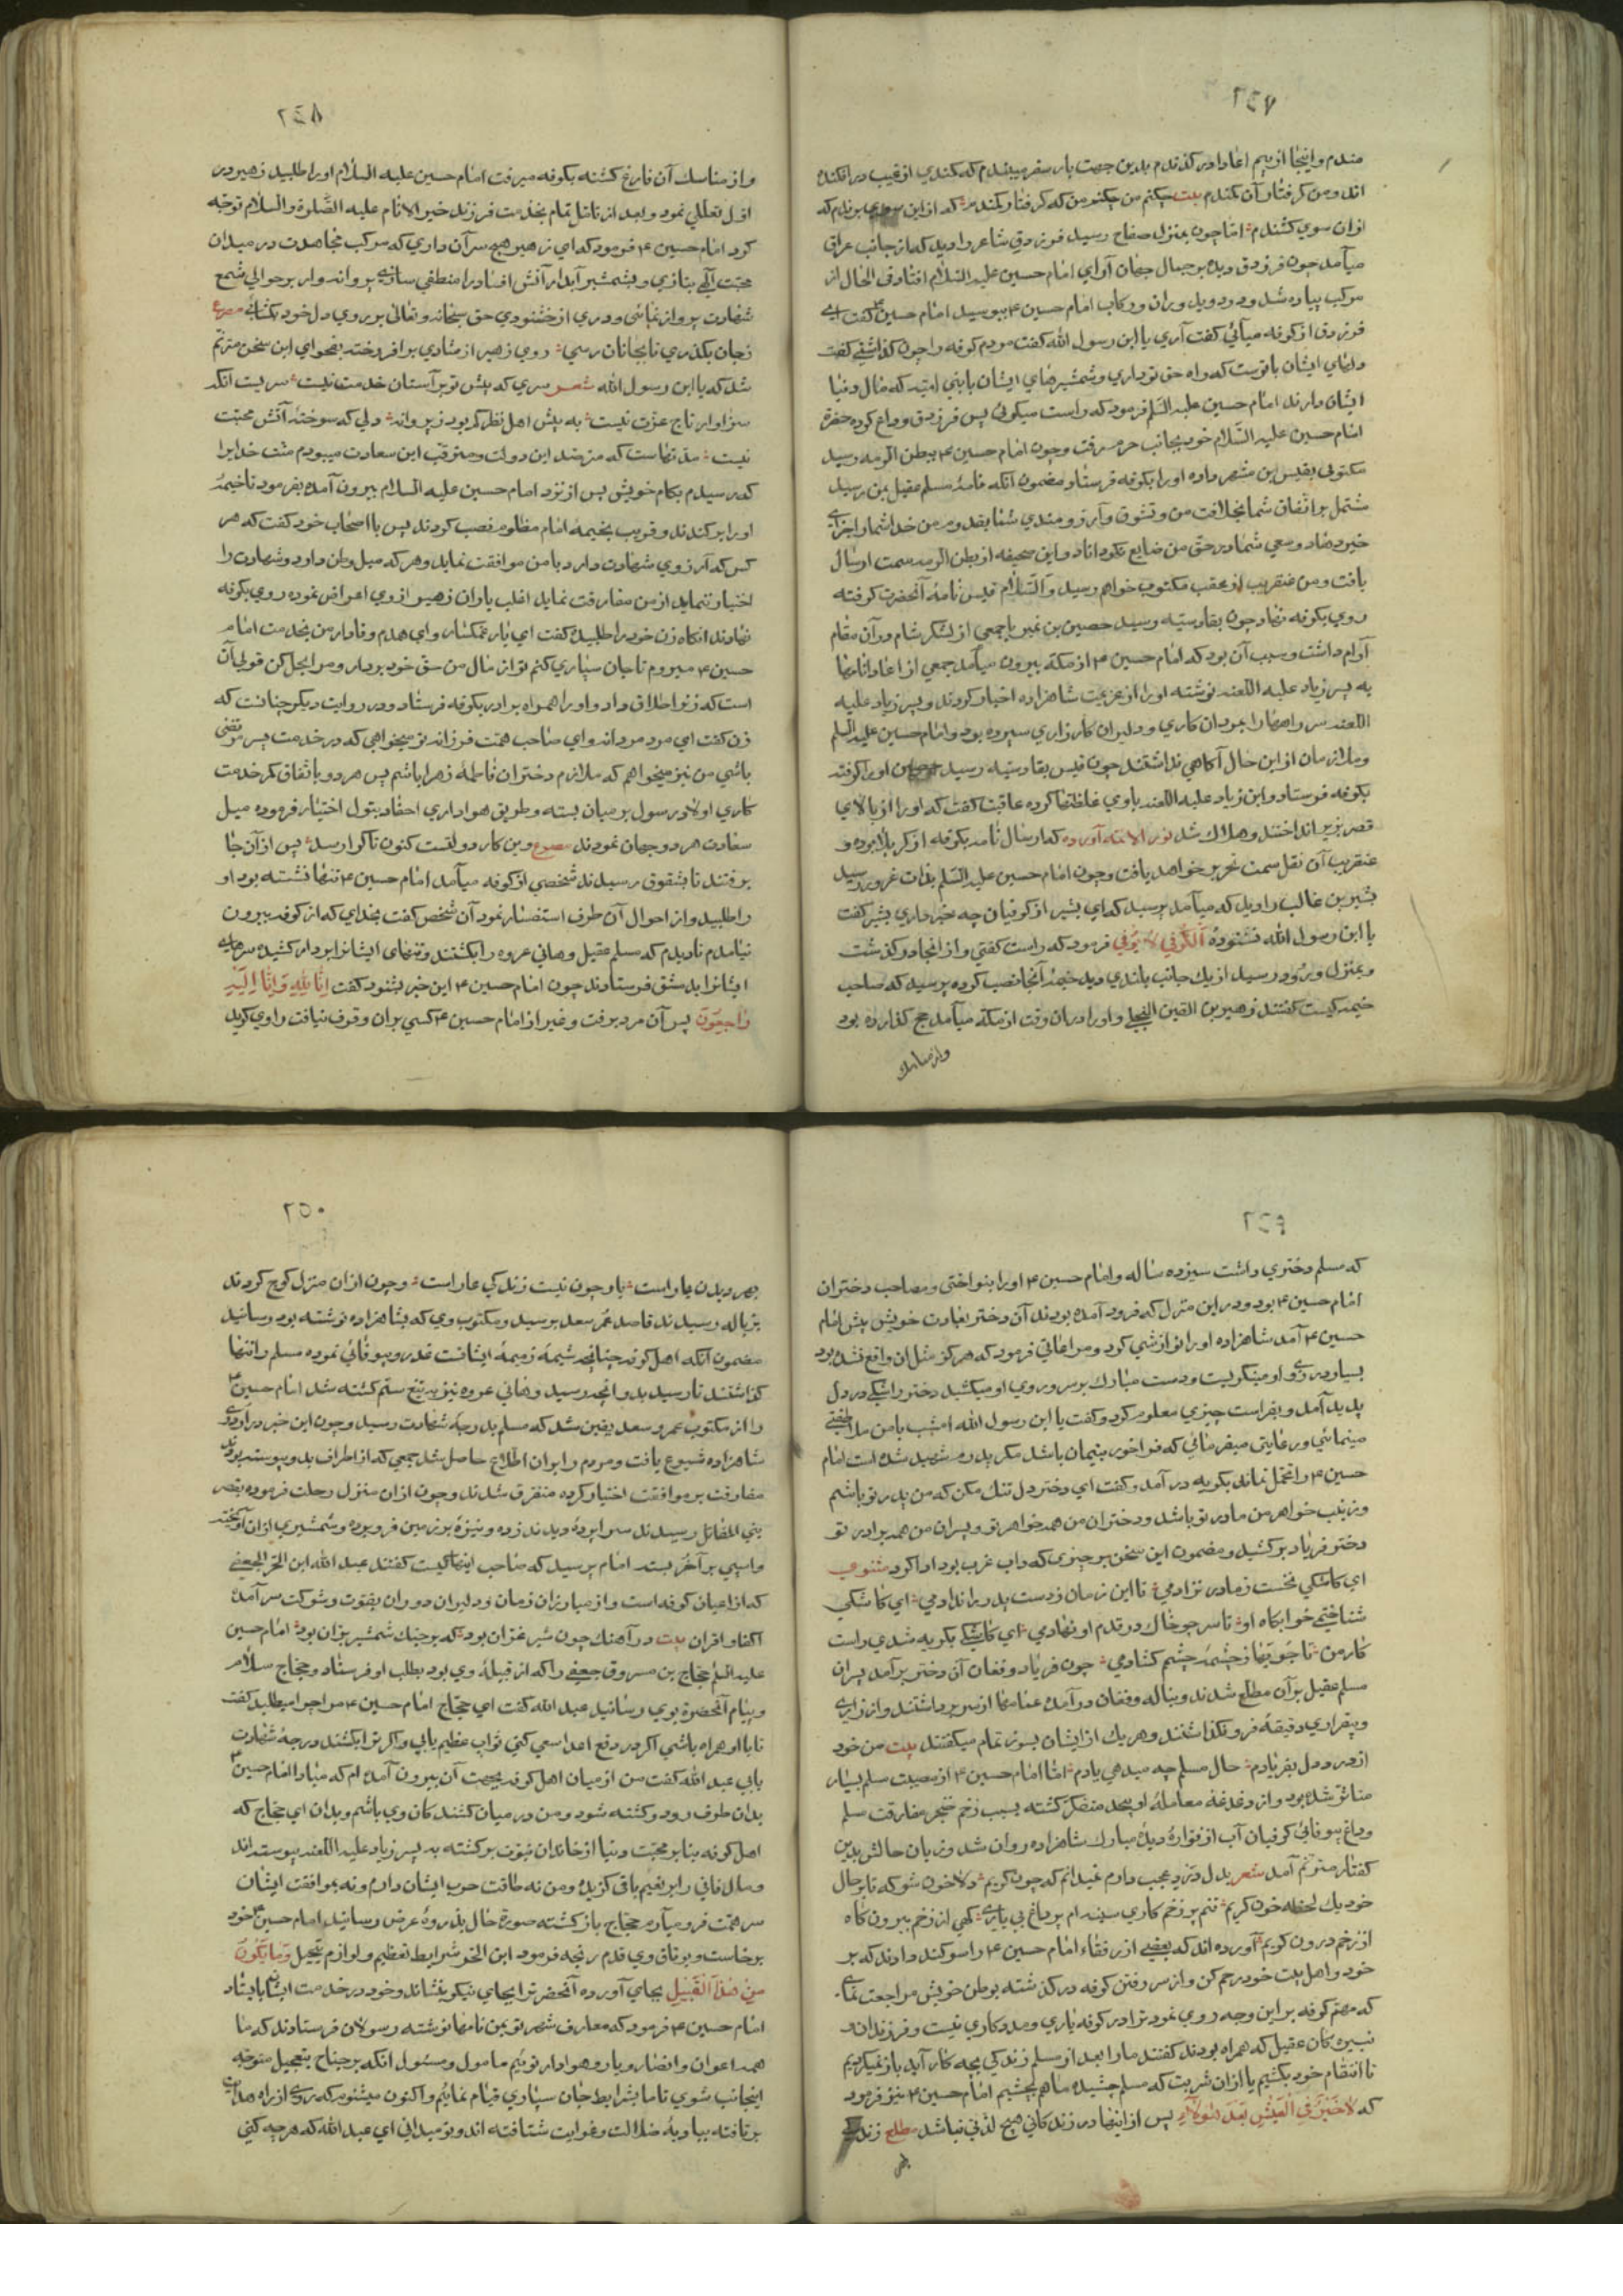 ٢٤٧
مندم و اینجا از بیم اعدا در کذندم بدین جهت بار سفر میبندم که کمندی از غیب در افکنده
اند و من کرفتار آن کمندم بیت چکنم من چکنم من که کرفتار کمندم که از این سوی برندم که
از ان سوی کشندم اما چون بمنزل صفاح رسید فرزدق شاعر را دید که از جانب عراق
میآمد چون فرزدق دیده بر جمال جهان آرای امام حسین علیه السلام افتاد فی الحال از
مرکب پیاده شد و دوید و ران و رکاب امام حسین ۴ ببوسید امام حسین ۴ کفت ای
فرزدق از کوفه میآئی کفت آری یا ابن رسول الله کفت مردم کوفه را چون کذاشتی کفت
دلهای ایشان با تست که راه حق تو داری و شمشیرهای ایشان با بنی امیه که مال دنیا
ایشان دارند امام حسین علیه السلم فرمود که راست میکوئی پس فرزدق وداع کرده حضرة
امام حسین علیه السلام خود بجانب حرم رفت و چون امام حسین ۴ ببطن الرمه رسید
مکتوبی بقیس بن مشهر داده او را بکوفه فرستاد مضمون آنکه نامۀ مسلم عقیل بمن رسید
مشتمل بر اتفاق شما بخلافت من و تشوق و آرزومندی شما بقدوم من خدا شما را جزای
خیر دهاد و سعی شما در حق من ضایع نکرداناد و این صحیفه از بطن الرمه سمت ارسال
یافت و من عنقریب از عقب مکتوب خواهم رسید والسلام قیس نامۀ آنحضرت کرفته
روی بکوفه نهاد چون بقادسیه رسید حصین بن نمیر با جمعی از لشکر شام در آن مقام
آرام داشت و سبب آن بود که امام حسین ۴ از مکه بیرون میآمد جمعی از اعدا نامها
به پسر زیاد علیه اللعنه نوشته او را از عزیمت شاهزاده اخبار کردند و پسر زیاد علیه
اللعنه سر راهها را بمردان کاری و دلیران کارزاری سپرده بود و امام حسین علیه السلم
و ملازمان از این حال آکاهی نداشتند چون قیس بقادسیه رسید حصین او را کرفته
بکوفه فرستاد و ابن زیاد علیه اللعنه با وی غلظتها کرده عاقبت کفت که او را از بالای
قصر بزیر انداختند و هلاک شد نور الائمه آورده که ارسال نامه بکوفه از کربلا بوده و
عنقریب آن نقل سمت تحریر خواهد یافت و چون امام حسین علیه السلم بذات عروز رسید
بشیر بن غالب را دید که میآمد پرسید که ای بشیر از کوفیان چه خبر داری بشیر کفت
یا ابن رسول الله نشنودۀ الکوفی لا یوفی فرمود که راست کفتی و از انجا در کذشت
و بمنزل ورود رسید از یک جانب بلندی دید خیمۀ آنجا نصب کرده پرسید که صاحب
خیمه کیست کفتند زهیر بن القین البجلی و او را در ان وقت از مکه میآمد حج کذارده بود
واز مناسک
٢٤٨
و از مناسک آن فارغ کشته بکوفه میرفت امام حسین علیه السلام او را طلبید زهیر در
اول تعللی نمود و بعد از تامل تمام بخدمت فرزند خیر الانام علیه الصلوة والسلام توجه
کرد امام حسین ۴ فرمود که ای زهیر هیچ سر آن داری که مرکب مجاهدت در میدان
محبت آلهی بتازی و بشمشیر آبدار آتش افساد را منطفی سازی پروانه وار بر حوالی شمع
شهادت پرواز نمائی و دری از خشنودی حق سبحانه و تعالی بر روی دل خود بکشائی مصرع
زجان بکذری تا بجانان رسی روی زهیر از شادی برافروخته بفحوای این سخن مترنم
شد که یا ابن رسول الله شعر سری که پیش تو بر آستان خدمت نیست سریست انکه
سزاوار تاج عزت نیست به پیش اهل نظر کم بود ز پروانه دلی که سوختۀ آتش محبت
نیست مدتهاست که مترصد این دولت و مترقب این سعادت میبودم منت خدایرا
که رسیدم بکام خویش پس از نزد امام حسین علیه السلام بیرون آمده بفرمود تا خیمۀ
او را برکندند و قریب بخیمۀ امام مظلوم نصب کردند پس با اصحاب خود کفت که هر
کس که آرزوی شهادت دارد با من موافقت نماید و هر که میل وطن دارد و شهادت را
اختیار ننماید از من مفارقت نماید اغلب یاران زهیر از وی اعراض نموده روی بکوفه
نهادند انکاه زن خود را طلبیده کفت ای یار غمکسار و ای همدم وفادار من بخدمت امام
حسین ۴ میروم تا جان سپاری کنم تو از مال من حق خود بردار و مرا بحل کن قولی آن
است که زنرا طلاق داد و او را همراه برادر بکوفه فرستاد و در روایت دیکر چنانست که
زن کفت ای مرد مردانه و ای صاحب همت فرزانه تو میخواهی که در خدمت پسر مرتضی
باشی من نیز میخواهم که ملازم دختران فاطمۀ زهرا باشم پس هر دو باتفاق کمر خدمت
کاری اولاد رسول بر میان بسته و طریق هواداری احفاد بتول اختیار فرموده میل
سعادت هر دو جهان نمودند مصرع وین کار دولتست کنون تا کرا رسد پس از آن جا
برفتند تا بشقوق رسیدند شخصی از کوفه میآمد امام حسین ۴ تنها نشسته بود او
را طلبید و از احوال آن طرف استفسار نمود آن شخص کفت بخدای که از کوفه بیرون
نیامدم تا دیدم که مسلم عقیل و هانی عروه را بکشتند و تنهای ایشانرا بر دار کشیده سرهای
ایشانرا بدمشق فرستادند چون امام حسین ۴ این خبر بشنود کفت انا لله و انا الیه
راجعون پس آن مرد برفت و غیر از امام حسین ۴ کسی بران وقوف نیافت راوی کوید
٢٤٩
که مسلم دختری داشت سیزده ساله و امام حسین ۴ او را بنواختی و مصاحب دختران
امام حسین ۴ بود و در این منزل که فرود آمده بودند آن دختر بعادت خویش پیش امام
حسین ۴ آمد شاهزاده او را نوازشی کرد و مراعاتی فرمود که هرکز مثل ان واقع نشده بود
بسیار در روی او مینکریست و دست مبارک بر سر و روی او میکشید دختر را شکی در دل
پدید آمد و بفراست چیزی معلوم کرد و کفت یا ابن رسول الله امشب با من ملاطفتی
مینمائی و رعایتی میفرمائی که فراخور یتیمان باشد مکر پدرم شهید شده است امام
حسین ۴ را تحمل نماند بکریه در آمد و کفت ای دختر دل تنک مکن که من پدر تو باشم
و زینب خواهر من مادر تو باشد و دختران من همه خواهر تو و پسران من همه برادر تو
دختر فریاد بر کشید و مضمون این سخن بر چیزی که داب عرب بود ادا کرد مثنوی
ای کاشکی نخست زمادر نزادمی تا این زمان ز دست پدر را ندادمی ای کاشکی
شناختمی خوابکاه او تا سر چو خاک در قدم او نهادمی ای کاشکی بکریه شدی راست
کار من تا جویها ز چشمۀ چشم کشادمی چون فریاد و فغان آن دختر بر آمد پسران
مسلم عقیل بر آن مطلع شدند و بناله و فغان در آمده عمامها از سر برداشتند و از زاری
و بیقراری دقیقۀ فرو نکذاشتند و هر یک از ایشان بسوز تمام میکفتند بیت من خود
از درد دل بفریادم حال مسلم چه میدهی یادم اما امام حسین ۴ از مصیبت مسلم بسیار
متاثر شده بود و از دغدغۀ معاملۀ او بیحد متفکر کشته بسبب زخم خنجر مفارقت مسلم
و داغ بیوفائی کوفیان آب از فوارۀ دیدۀ مبارک شاهزاده روان شد و زبان حالش بدین
کفتار مترنم آمد شعر بدل درد عجب دارم نمیدانم که چون کریم دلا خون شو که تا بر حال
خود یک لحظه خون کریم تنم پر زخم کاری سینه ام پر داغ بی یاری کهی از زخم بیرون کاه
از زخم درون کریم آورده اند که بعضی از رفقاء امام حسین ۴ را سوکند دادند که بر
خود و اهل بیت خود رحم کن و از سر رفتن کوفه در کذشته بوطن خویش مراجعت نمای
که مهم کوفه بر این وجه روی نمود ترا در کوفه یاری و مددکاری نیست و فرزندان و
نبیره کان عقیل که همراه بودند کفتند ما را بعد از مسلم زندکی بچه کار آید باز نمیکردیم
تا انتقام خود بکشیم یا از ان شربت که مسلم چشیده ما هم بچشیم امام حسین ۴ نیز فرمود
که لا خیر فی العیش بعد هولاء پس از اینها در زندکانی هیچ لذتی نباشد مطلع زندکی
بهر
٢٥٠
بهر دیدن یار است یار چون نیست زندکی عار است و چون از ان منزل کوچ کردند
بزباله رسیدند قاصد عمر سعد برسید و مکتوب وی که بشاهزاده نوشته بود رسانید
مضمون آنکه اهل کوفه چنانچه شیمۀ ذمیمۀ ایشانست غدر و بیوفائی نموده مسلم را تنها
کذاشتند تا رسید بدو انچه رسید و هانی عروه نیز به تیغ ستم کشته شد امام حسین ۴
را از مکتوب عمر و سعد یقین شد که مسلم بدرجۀ شهادت رسید و چون این خبر در اردوی
شاهزاده شیوع یافت و مردم را بران اطلاع حاصل شد جمعی که از اطراف بدو پیوسته بودند
مفارقت بر موافقت اختیار کرده متفرق شدند و چون از ان منزل رحلت فرموده بقصر
بنی المقاتل رسیدند سراپردۀ دیدند زده و نیزۀ بر زمین فرو برده و شمشیری از ان آویخته
و اسبی بر آخر بسته امام پرسید که صاحب اینها کیست کفتند عبد الله ابن الحر الجعفی
که از اعیان کوفه است و از مبارزان زمان و دلیران دوران بقوت و شوکت سر آمدۀ
اکفا و اقران بیت در آهنک چون شیر غران بود که بر جنک شمشیر بران بود امام حسین
علیه السلم حجاج بن مسروق جعفی را که از قبیلۀ وی بود بطلب او فرستاد و حجاج سلام
و پیام آنحضرة بوی رسانید عبد الله کفت ای حجاج امام حسین ۴ مرا چرا میطلبد کفت
تا با او همراه باشی اکر در دفع اعدا سعی کنی ثواب عظیم یابی و اکر ترا بکشند درجۀ شهادت
یابی عبد الله کفت من از میان اهل کوفه بجهت آن بیرون آمده ام که مبادا امام حسین ۴
بدان طرف رود و کشته شود و من در میان کشندکان وی باشم و بدان ای حجاج که
اهل کوفه بنا بر محبت دنیا از خاندان نبوت برکشته به پسر زیاد علیه اللعنه پیوسته اند
و مال فانی را بر نعیم باقی کزیده و من نه طاقت حرب ایشان دارم و نه بموافقت ایشان
سر همت فرو میآرم حجاج باز کشته صورة حال بذروۀ عرض رسانید امام حسین ۴ خود
برخاست و بوثاق وی قدم رنجه فرمود ابن الحر شرایط تعظیم و لوازم تبجیل و ما یکون
من هذا القبیل بجای آورده آنحضرترا بجای نیکو بنشاند و خود در خدمت ایشان بایستاد
امام حسین ۴ فرمود که معارف شهر تو بمن نامها نوشته رسولان فرستادند که ما
همه اعوان و انصار و یار و هوادار توئیم مامول و مسئول آنکه بر جناح تعجیل متوجه
اینجانب شوی تا ما بشرایط جان سپاری قیام نمائیم و اکنون میشنوم که روی از راه هدایت
بر تافته ببادیۀ ضلالت و غوایت شتافته اند و تو میدانی ای عبد الله که هر چه کنی